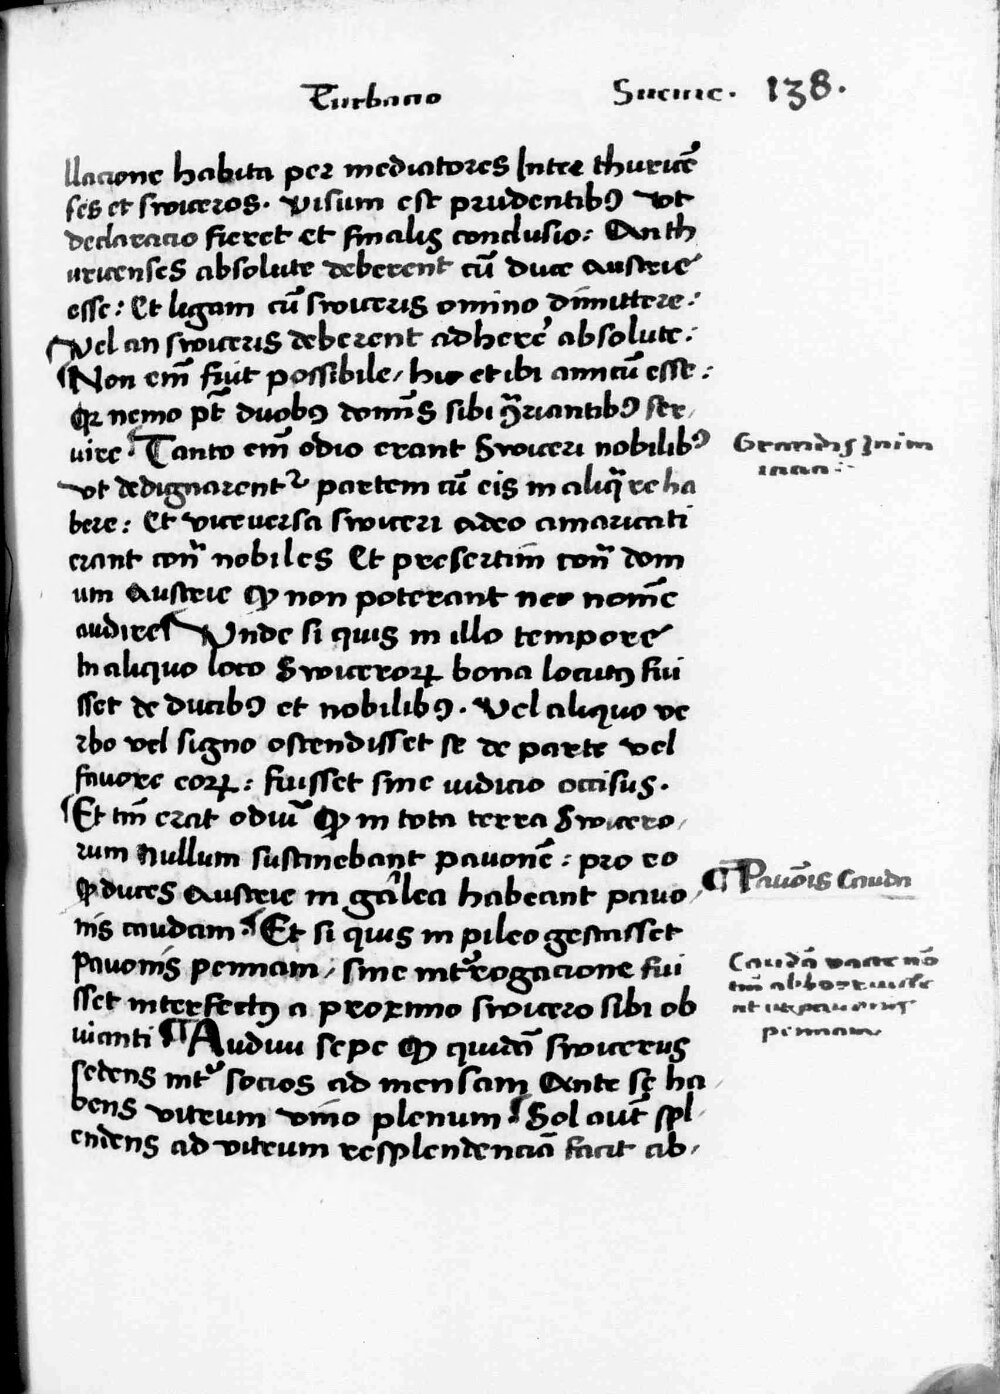 Turbacio Sueuie. 138.
llacione habita per mediatores Inter thuricē
ses et swiceros. visum est prudentibꝯ vt
declaracio fieret et finalis conclusio: An th
uricenses absolute deberent cū duce austrie
esse: Et ligam cū swiceris omīno dimittere:
Vel an swiceris deberent adherē absolute:
¶Non em̄ fiūt possibile/ hic et ibi amicū esse:
Qr nemo pt̄ duobꝯ domīs sibi ꝯriantibꝯ ser/
uire ¶Tanto em̄ odio erant Swiceri nobilibꝯ
vt dedignarentᷣ partem cū eis in aliqͣ re ha
bere: Et viceuersa swiceri adeo amaricati
erant conͣ nobiles Et presertim conͣ dom
um austrie ꝙ non poterant nec nomē
audire ¶ Vnde si quis in illo tempore
In aliquo loco Swiceroꝝ bona locutꝯ fui
sset de ducibꝯ et nobilibꝯ. Vel aliquo ve
rbo vel signo ostendisset se de parte vel
fauore eoꝝ: fuisset sine iudicio occisus.
¶Et tm̄ erat odiū ꝙ in tota terra Swicero/
rum nullum sustinebant pauonē: pro eo
ꝙ duces Austrie in galea habeant pauo/
nis caudam ¶Et si quis in pileo gestasset
pauonis pennam/ sine int̉rogacione fui
sset interfectꝯ a proximo swicero sibi ob
uianti ¶Audiui sepe ꝙ quidā swicerus
sedens int̉ socios ad mensam Ante se ha/
bens vitrum vino plenum ¶Sol aut̄ spl/
endens ad vitrum resplendenciā facit ab/
Grandis Inim
icicia:
¶Pauōis Cauda
Caudā nō
tm̄ abhorruisse
pauonis
pennam